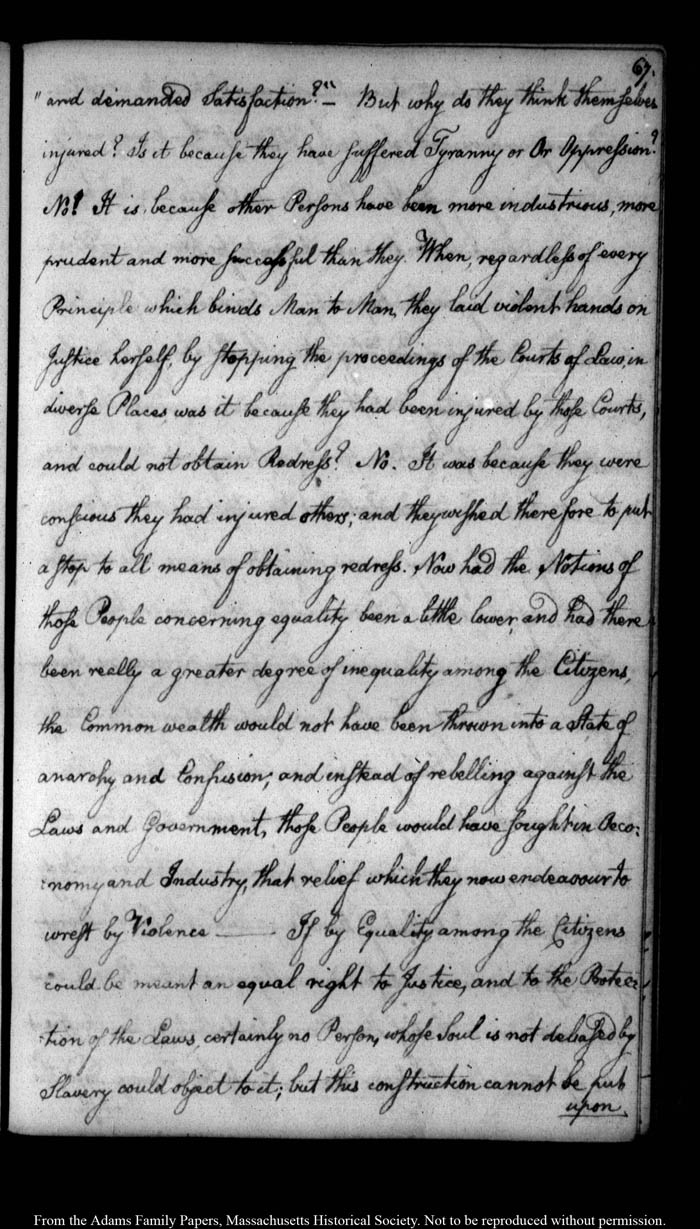 67.
"and demanded Satisfaction?"— But why do they think themselves
injured? Is it because they have suffered Tyranny or Or Oppression?
No! It is, because other Persons have been more industrious, more
prudent and more successful than they. When, regardless of every
Principle which binds Man to Man, they laid violent hands on
Justice herself, by stopping the proceedings of the Courts of Law, in
diverse Places, was it because they had been injured by those Courts,
and could not obtain Redress? No. It was because they were
conscious they had injured others; and they wished therefore to put
a stop to all means of obtaining redress. Now had the Notions of
those People concerning equality been a little lower, and had there
been really a greater degree of inequality among the Citizens,
the Common wealth would not have been thrown into a State of
anarchy and Confusion; and instead of rebelling against the
Laws and Government, those People would have sought in Oeco:
:nomy and Industry, that relief which they now endeavour to
wrest by Violence —— If by Equality among the Citizens
could be meant an equal right to Justice, and to the Protec:
:tion of the Laws, certainly no Person, whose Soul is not debased by
Slavery could object to it; but this construction cannot be put
upon.
From the Adams Family Papers, Massachusetts Historical Society. Not to be reproduced without permission.